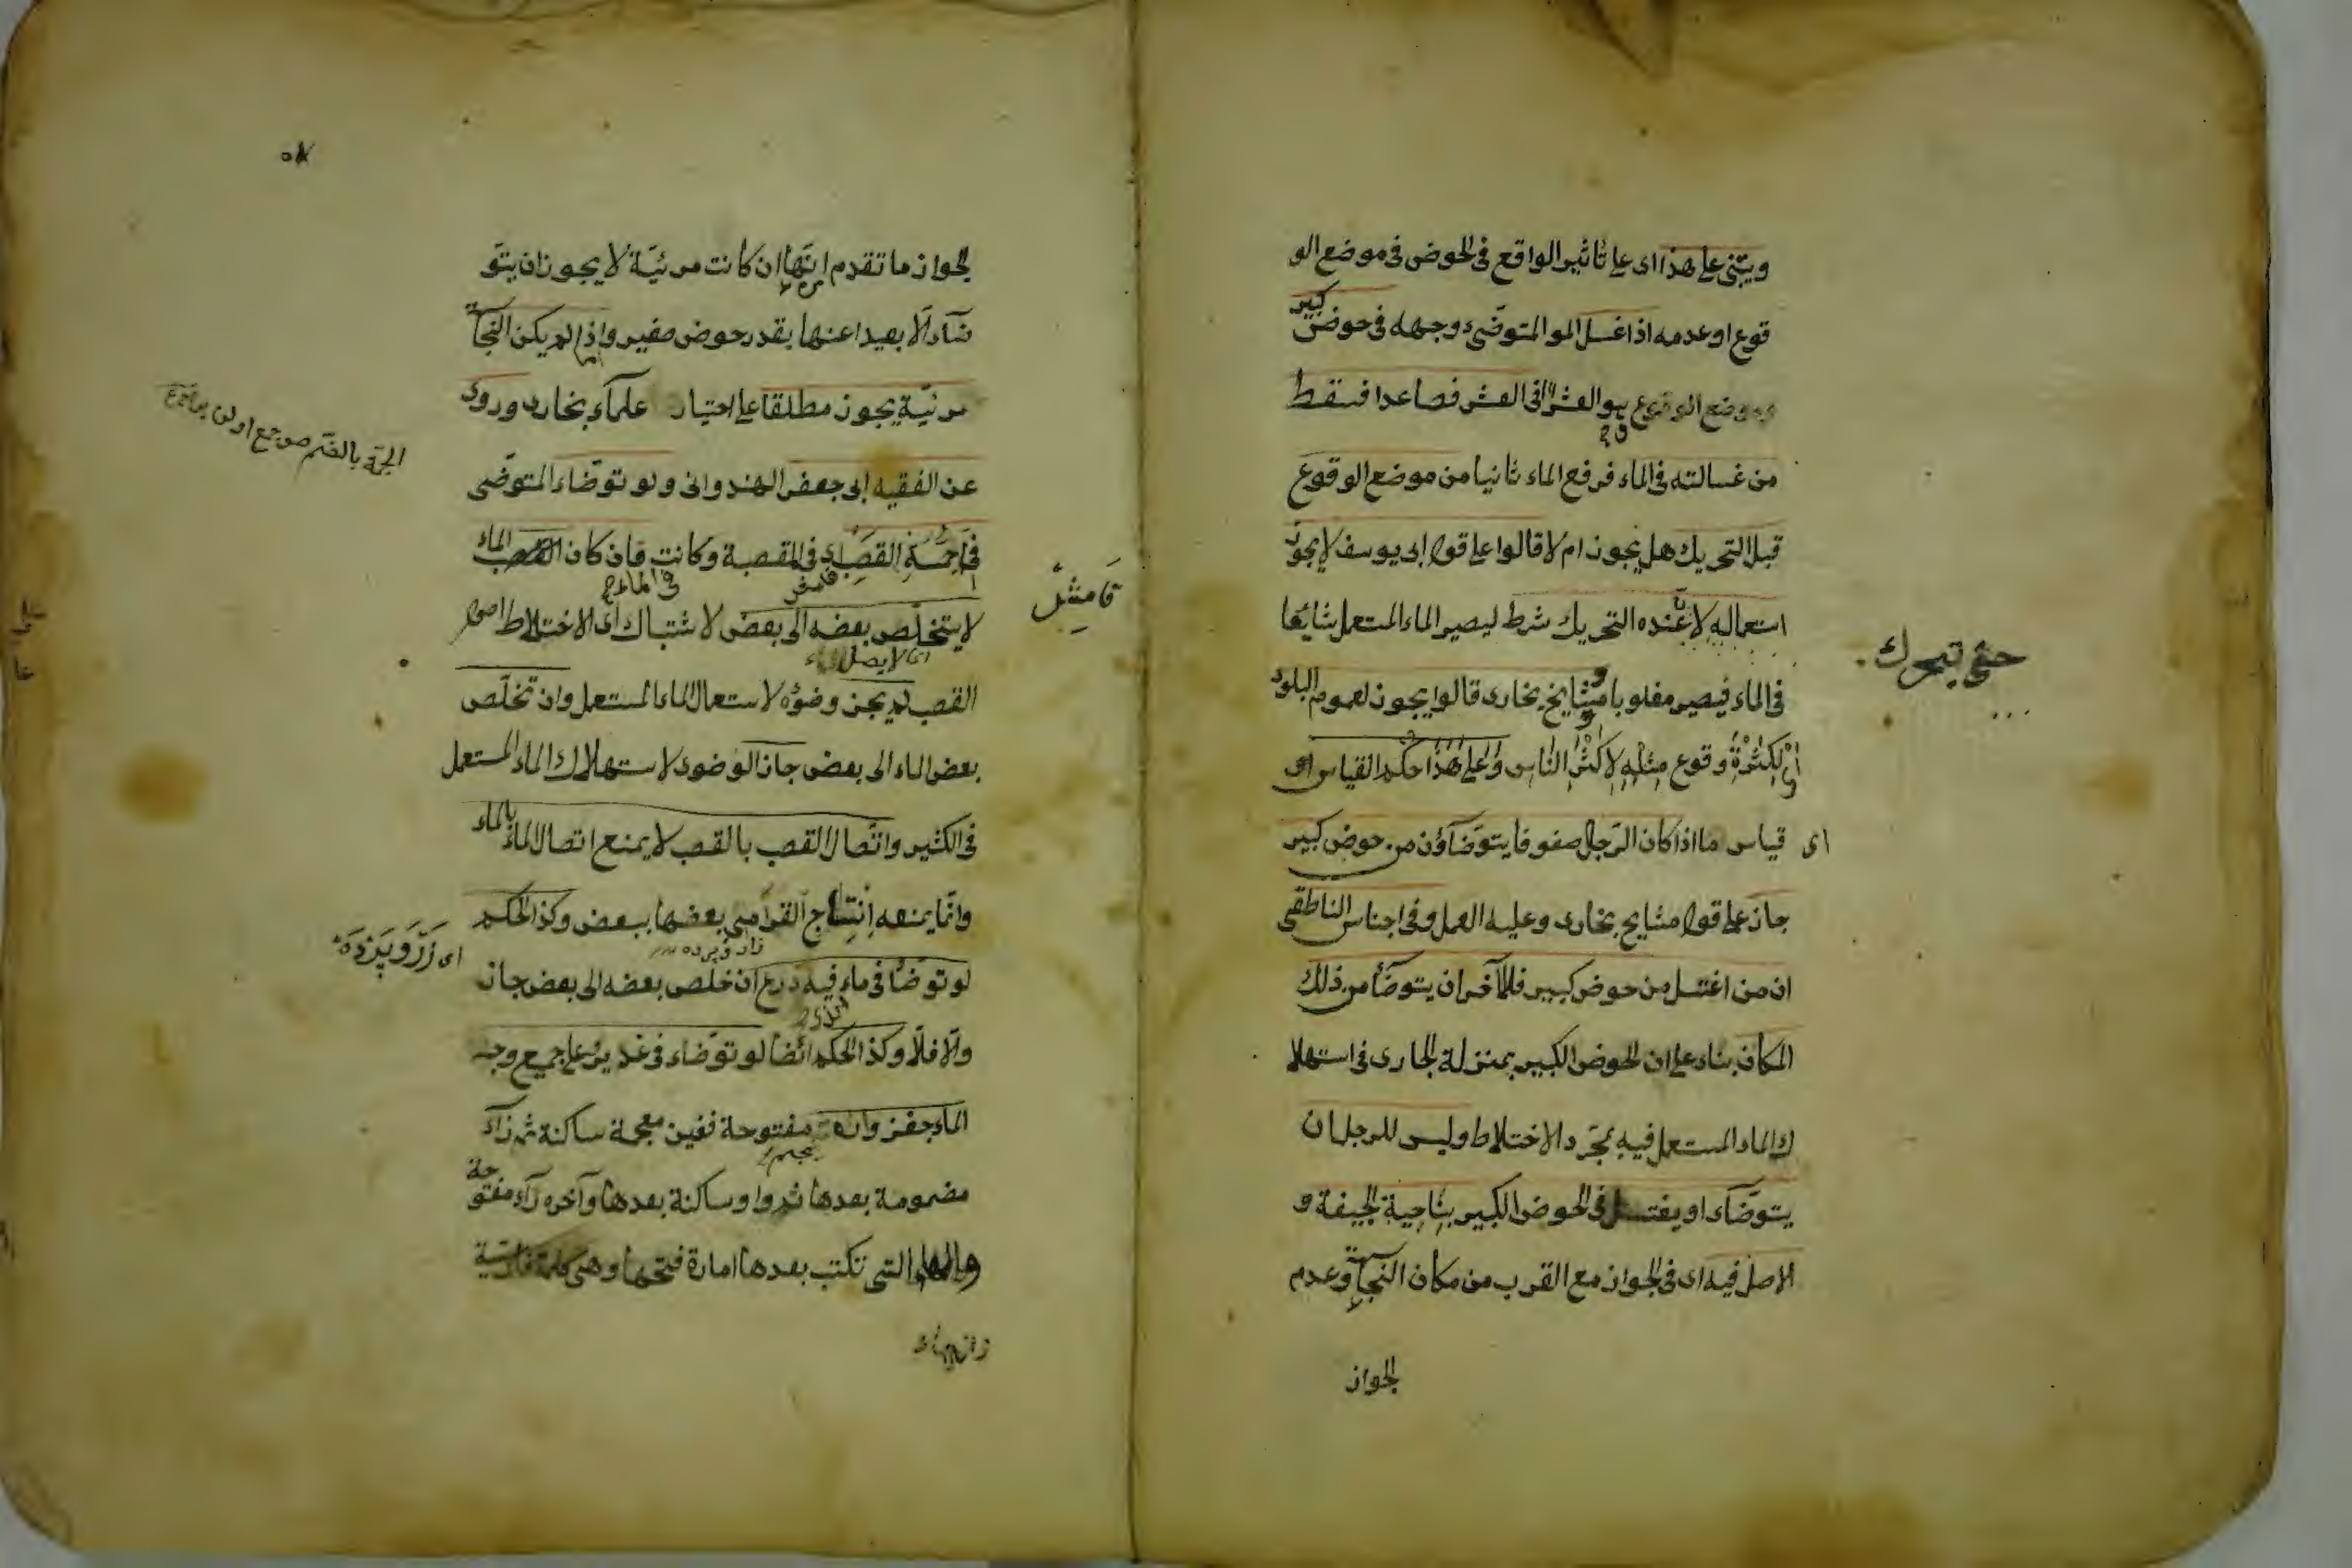 ويبتنى على هذا اى على تاثير الواقع فى الحوض فى موضع الو
قوع او عدمه اذا غسل المو المتوضى وجهه فى حوض كبير
وموضع الوقوع هو العشر فى العشر فصاعدا فسقط
من غسالته فى الماء فرفع الماء ثانيا من موضع الوقوع
قبل التحريك هل يجوز ام لا قالوا على قول ابى يوسف لا يجوز
استعماله لان عنده التحريك شرط ليصير الماء المستعمل شايعا
حتى تحرك
فى الماء فيصير مغلوبا ومشايخ بخارى قالوا يجوز لعموم البلوى
اى لكثرة وقوع مثله لاكثر الناس وعلى هذا حكم القياس اى
اى قياس ما اذا كان الرجال صفوفا يتوضاؤن من حوض كبير
جاز على قول مشايخ بخارى وعليه العمل وفى اجناس الناطقى
ان من اغتسل من حوض كبير فللآخر ان يتوضأ من ذلك
المكان بناء على ان الحوض الكبير بمنزلة الجارى فى استهلا
ك الماء المستعمل فيه بمجرد الاختلاط وليس للرجل ان
يتوضاء او يغتسل فى الحوض الكبير بناحية الجيفة و
الاصل فيه اى فى الجواز مع القرب من مكان النجاسة وعدم
الجواز
الجواز ما تقدم انها ان كانت مرئية لا يجوز ان يتو
ضاء الا بعيدا عنها بقدر حوض صغير واذا لم يكن النجاسة
مرئية يجوز مطلقا على اختيار علماء بخارى وروى
عن الفقيه ابى جعفر الهندوانى ولو توضاء المتوضى
فى اجمة القصب اى فى المقصبة وكانت فان كان الماء
قامش
فى الماء
لا يتخلص بعضه الى بعض لاشتباك اى الاختلاط اصول
اى لا يصل الماء
القصب لم يجز وضوؤه لاستعمال الماء المستعمل وان تخلص
بعض الماء الى بعض جاز الوضوء لاستهلاك الماء المستعمل
فى الكثير واتصال القصب بالقصب لا يمنع اتصال الماء بالماء
وانما يمنعه بعضها ببعض وكذا الحكم
لو توضأ فى ماء فيه زرع ان خلص بعضه الى بعض جاز
والا فلا وكذا الحكم ايضا لو توضاء فى غدير على جميع وجه
الماء جغز مفتوحة فغين معجمة ساكنة ثم زاء
مضمومة بعدها ثم واو ساكنة بعدها وآخره راء مفتوحة
والهاء التى تكتب بعدها امارة فتحها وهى كلمة فارسية